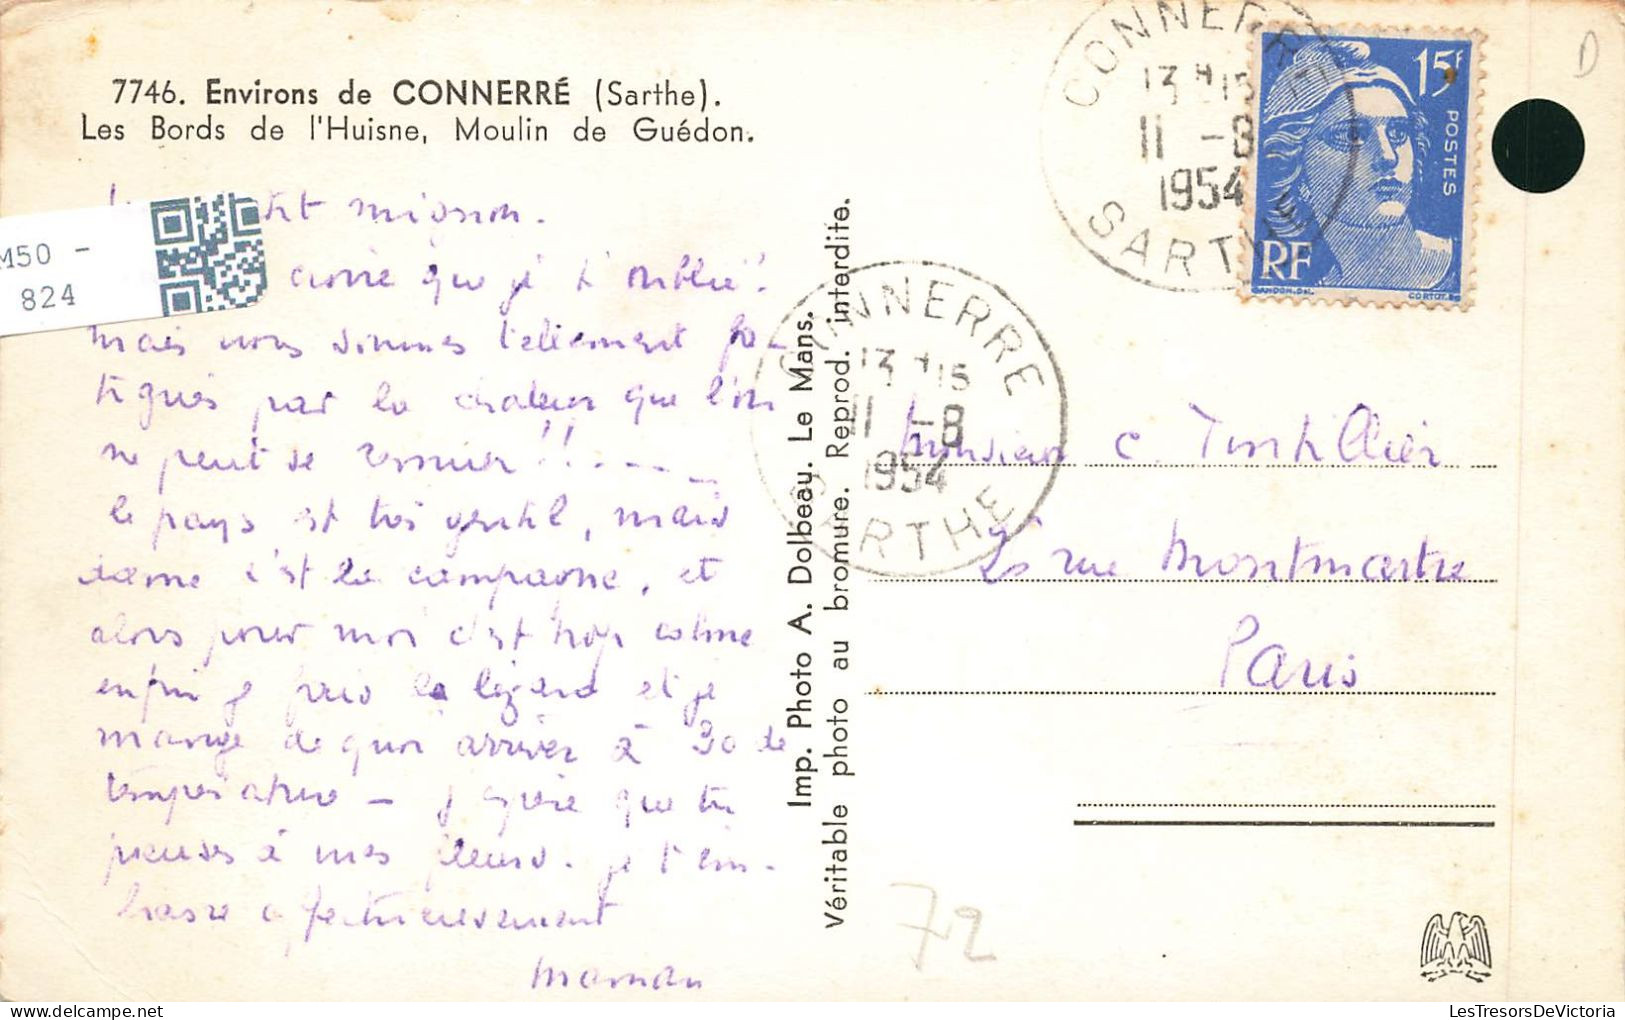 7746. Environs de CONNERRÉ (Sarthe).
Les Bords de l'Huisne, Moulin de Guédon.
M50 -
824
mignon.
croire que je t'oublie!
mais nous sommes tellement fa-
tigués par la chaleur que l'on
ne peut se remuer!! ....
le pays est très gentil, mais
dame c'est la campagne, et
alors pour moi c'est trop calme
enfin je fais le lézard et je
mange de quoi arriver à 30 de
température - j'espère que tu
penses à mes fleurs. je t'em-
brasse affectueusement
maman
Imp. Photo A. Dolbeau. Le Mans.
Véritable photo au bromure. Reprod. interdite.
CONNERRE
13 H 15
11 -8
1954
SARTHE
CONNERRE
13 H 15
11 -8
1954
SARTHE
15F
POSTES
RF
GANDON.DEL.
CORTOT.SC
D
Monsieur C.
rue Montmartre
Paris
72
LesTresorsDeVictoria